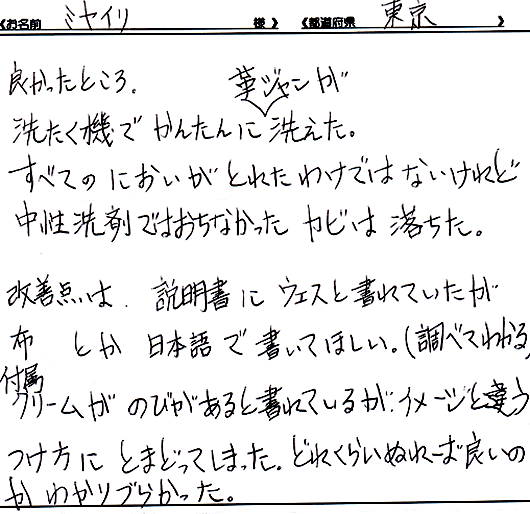 《お名前 ミヤイリ 様》《都道府県 東京 》
良かったところ. 革ジャンが
洗たく機で かんたんに洗えた。
すべてのにおいがとれたわけではないけれど
中性洗剤ではおちなかった カビは 落ちた。
改善点は. 説明書に ウェスと書れていたが
布 とか 日本語で書いてほしい。(調べてわかる)
付属
クリームが のびがあると書れているが.イメージと違う
つけ方に とまどってしまった. どれくらいぬれーば良いの
か わかりづらかった。